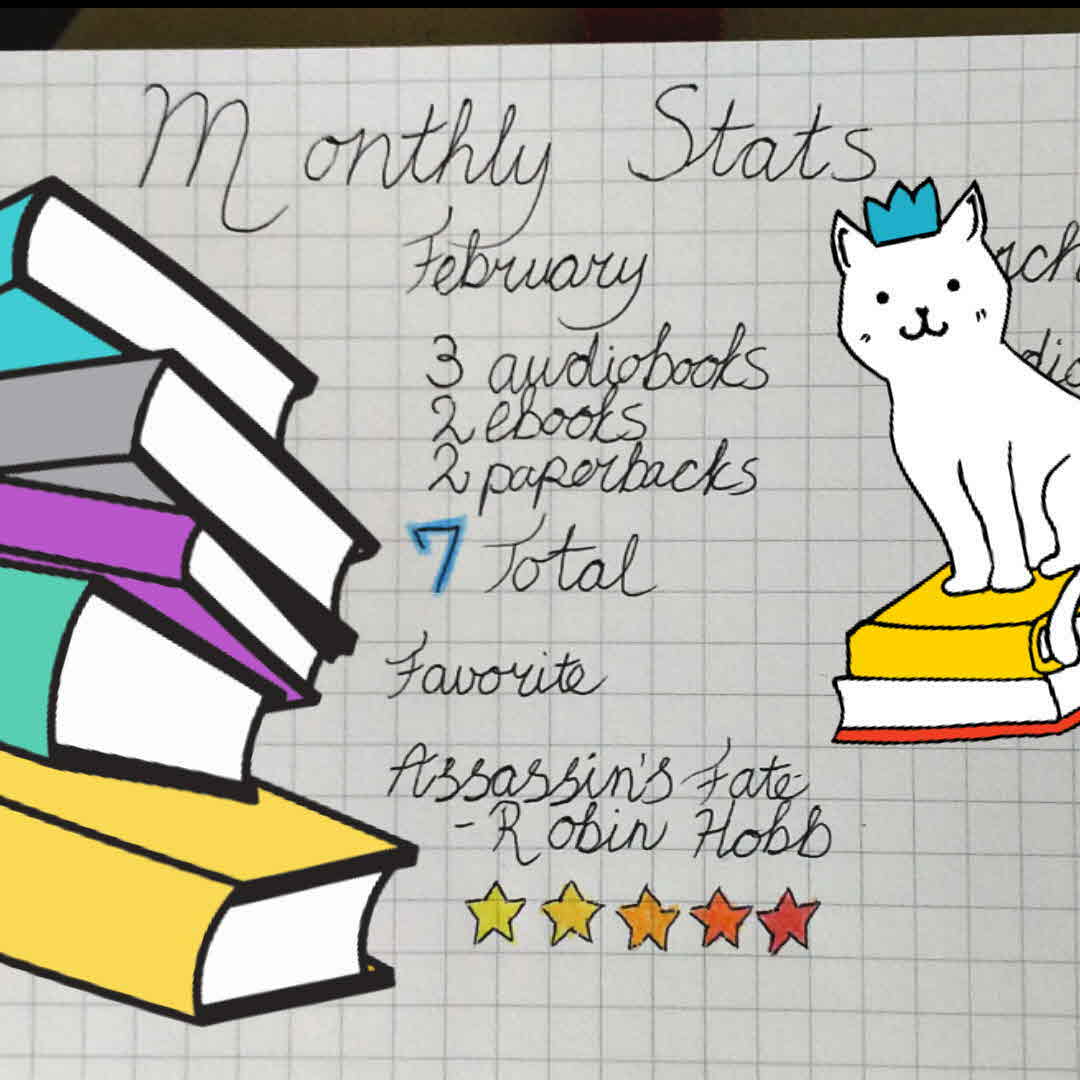 Monthly Stats
February
3 audiobooks
2 ebooks
2 paperbacks
7 Total
Favorite
Assassin's Fate
- Robin Hobb